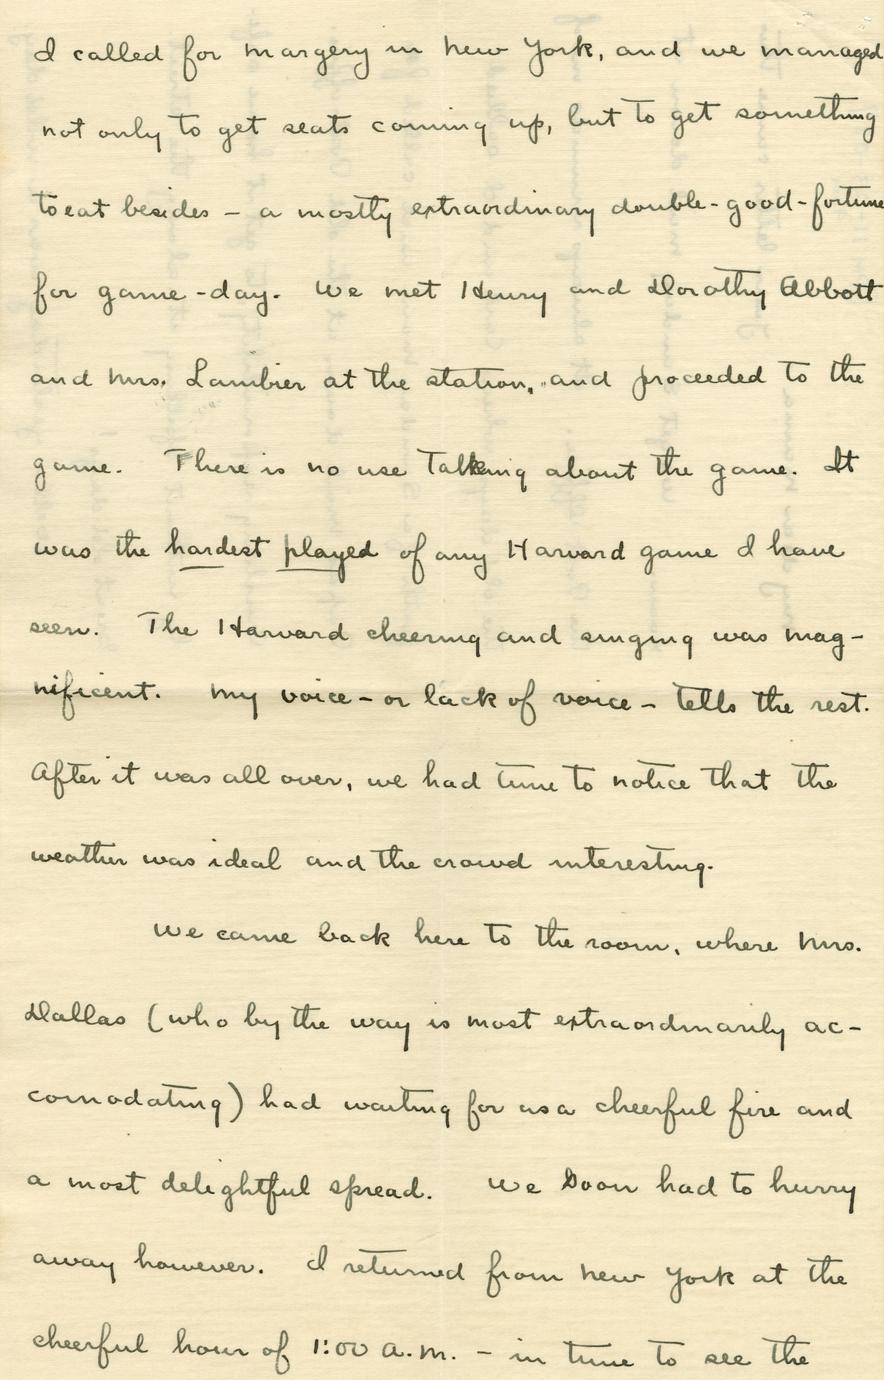 I called for Margery in New York, and we managed
not only to get seats coming up, but to get something
to eat besides – a mostly extraordinary double-good-fortune
for game-day. We met Henry and Dorothy Abbott
and Mrs. Lambier at the station, and proceeded to the
game. There is no use talking about the game. It
was the hardest played of any Harvard game I have
seen. The Harvard cheering and singing was mag-
nificent. My voice – or lack of voice – tells the rest.
After it was all over, we had time to notice that the
weather was ideal and the crowd interesting.
We came back here to the room, where Mrs.
Dallas (who by the way is most extraordinarily ac-
comodating) had waiting for us a cheerful fire and
a most delightful spread. We soon had to hurry
away however. I returned from New York at the
cheerful hour of 1:00 A.M. – in time to see the